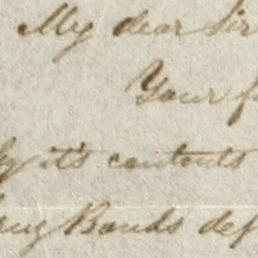 My dear Sir
Your f
by it's contents
Bonds def